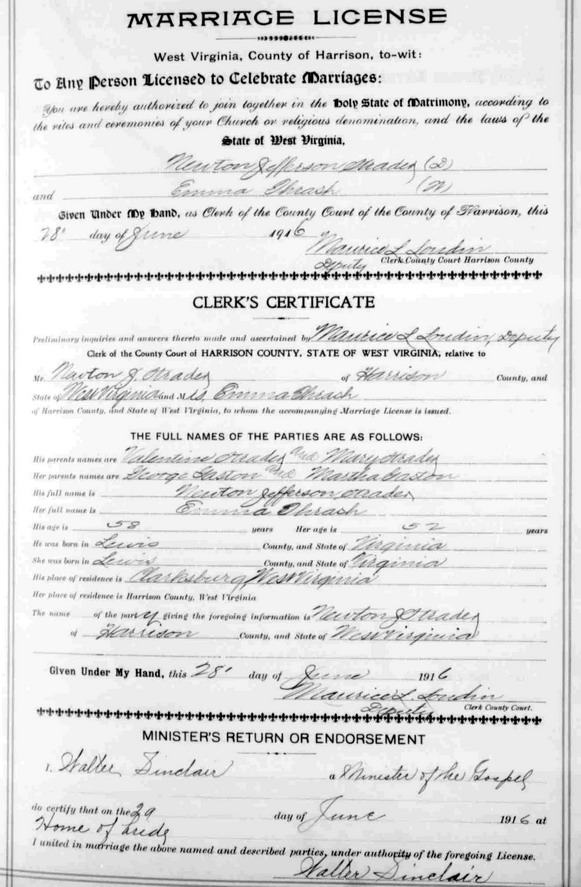 MARRIAGE LICENSE
West Virginia, County of Harrison, to-wit:
To Any Person Licensed to Celebrate Marriages:
You are hereby authorized to join together in the Holy State of Matrimony, according to
the rites and ceremonies of your Church or religious denomination, and the laws of the
State of West Virginia,
Newton Jefferson Strader (D)
and Emma Thrash (W)
Given Under My Hand, as Clerk of the County Court of the County of Harrison, this
28' day of June 1916
Maurice L Loudin
Deputy Clerk County Court Harrison County
CLERK'S CERTIFICATE
Preliminary inquiries and answers thereto made and ascertained by Maurice L Loudin, Deputy
Clerk of the County Court of HARRISON COUNTY, STATE OF WEST VIRGINIA, relative to
Mr. Newton J. Strader of Harrison County, and
State of West Virginia and M is. Emma Thrash
of Harrison County, and State of West Virginia, to whom the accompanying Marriage License is issued.
THE FULL NAMES OF THE PARTIES ARE AS FOLLOWS:
His parents names are Valentine Strader and Mary Strader
Her parents names are George Gaston and Martha Gaston
His full name is Newton Jefferson Strader
Her full name is Emma Thrash
His age is 58 years Her age is 52 years
He was born in Lewis County, and State of Virginia
She was born in Lewis County, and State of Virginia
His place of residence is Clarksburg, West Virginia
Her place of residence is Harrison County, West Virginia
The name of the party giving the foregoing information is Newton J Strader
of Harrison County, and State of West Virginia
Given Under My Hand, this 28' day of June 1916
Maurice L. Loudin
Deputy Clerk County Court.
MINISTER'S RETURN OR ENDORSEMENT
I, Walter Sinclair a Minister of the Gospel
do certify that on the 29 day of June 1916 at
Home of bride
I united in marriage the above named and described parties, under authority of the foregoing License.
Walter Sinclair